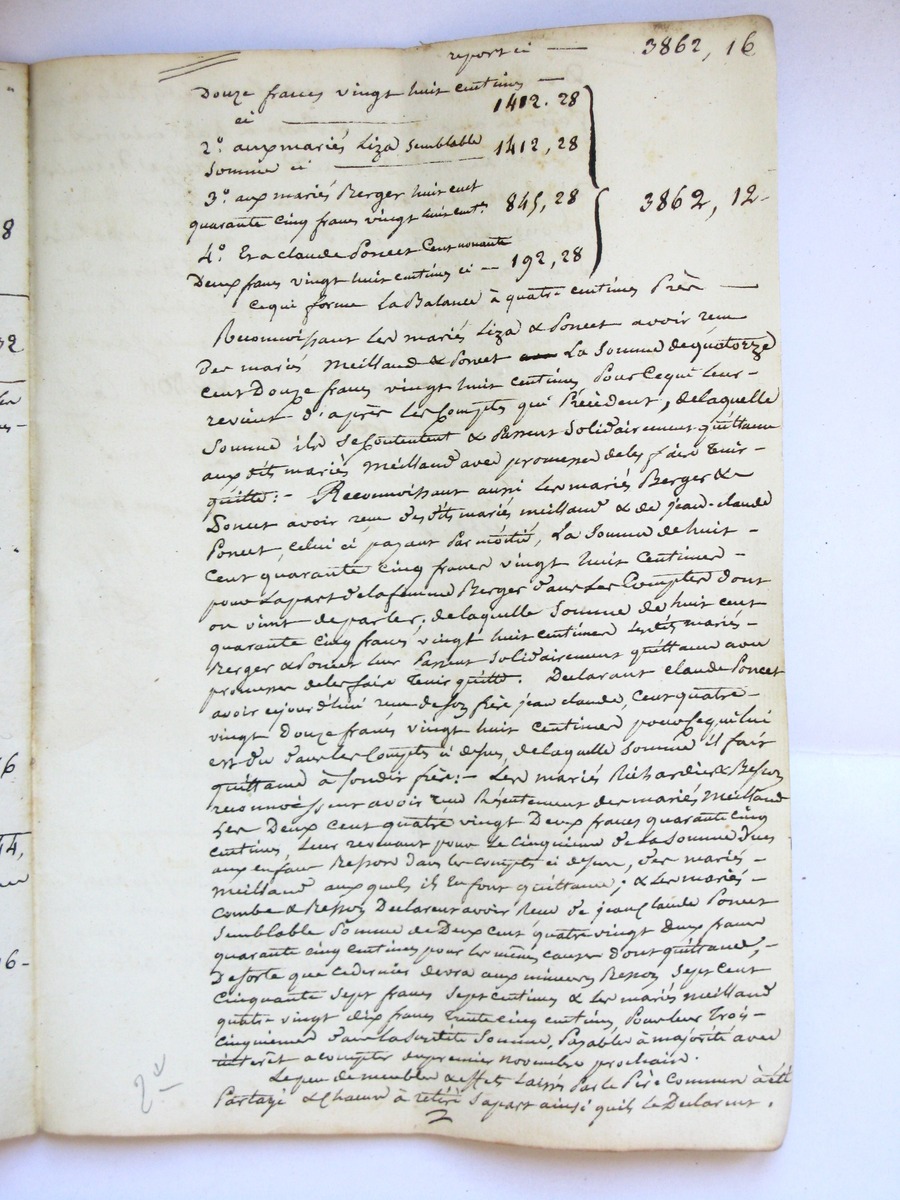 report ci — 3862, 16
Douze francs vingt huit centimes —
ci — 1412. 28
2º. aux mariés Liza semblable
somme ci — 1412, 28
3º. aux mariés Berger huit cent
quarante cinq francs vingt huit cent.s 845, 28
3862, 12-
4º. Et a claude Poncet Cent nonante
Deux francs vingt huit centimes ci — 192, 28
ce qui forme La Balance à quatre centimes Près —
Reconnoissant Les mariés Liza & Poncet avoir reçu
Des mariés Meilland & Poncet La Somme de quatorze
cent Douze francs vingt huit centimes, Pour Ce qui Leur -
revient d'après Les Comptes qui Précèdent, de laquelle
Somme ils se Contentent & Passent Solidairement quittance
aux dits mariés Meilland avec promesse de les faire Tenir -
quitte :- Reconnoissant aussi Les mariés Berger &
Poncet avoir reçu des dits mariés meilland & de jean-claude
Poncet, celui ci payant Par moitié, La Somme de huit -
Cent quarante cinq francs vingt huit Centimes -
pour La part de la femme Berger dans Les Comptes dont
on vient de parler, de laquelle Somme de huit cent
quarante cinq francs vingt huit centimes les dits mariés -
Berger & Poncet leur Passent Solidairement quittance avec
promesse de les faire Tenir quitte. Declarant claude Poncet
avoir cejourd'hui reçu de son frère jean claude, Cent quatre -
vingt Douze francs vingt huit centimes pour Ce qui lui
est dû dans les Comptes ci dessus, de laquelle Somme il fait
quittance à Sondit frère :- Les mariés Richardier & Besson
reconnoissent avoir reçu Présentement des mariés Meilland
Les Deux cent quatre vingt Deux francs quarante cinq
centimes Leur revenant pour Le Cinquième de La Somme Dues
aux enfans Besson dans les comptes ci dessus, des mariés -
Meilland aux quels ils En font quittance ; & Les mariés -
Combe & Besson Declarent avoir Reçu de jean Claude Poncet
Semblable Somme de Deux cent quatre vingt deux francs
quarante cinq centimes pour les mêmes causes dont quittance, -
De sorte que ce dernier devra aux mineurs Besson Sept Cent
Cinquante Sept francs Sept centimes & Les mariés meilland
quatre vingt dix francs Trente cinq centimes, Pour leur Trois -
cinquièmes dans La Susdite Somme, Payables à majorité avec
interêt à compter du premier novembre prochain.
Le peu de meubles & effets Laissés Par le Père Commun à été
Partagé & Chacun à retiré Sa part ainsi qu'ils Le Declarent.